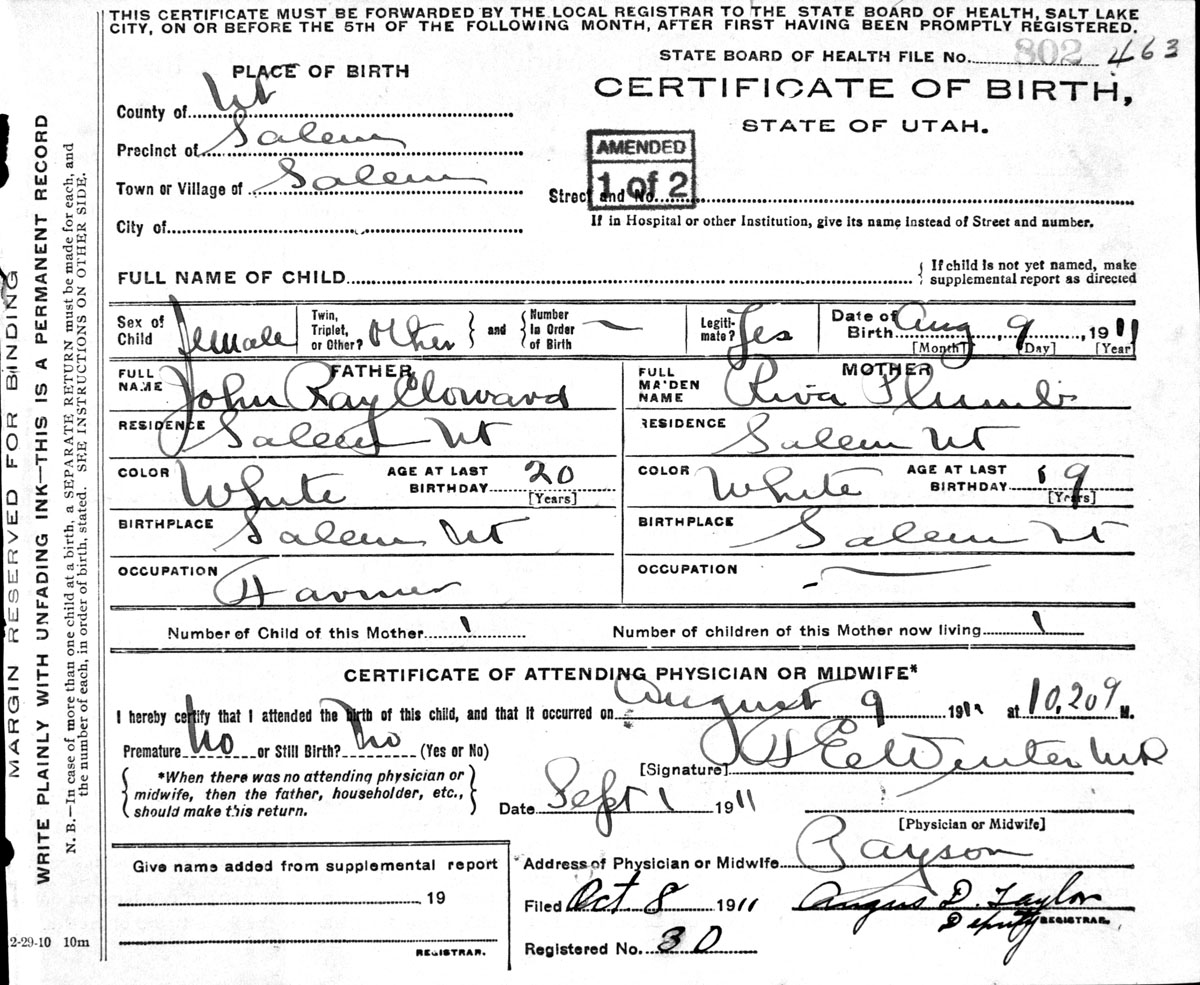 THIS CERTIFICATE MUST BE FORWARDED BY THE LOCAL REGISTRAR TO THE STATE BOARD OF HEALTH, SALT LAKE
CITY, ON OR BEFORE THE 5TH OF THE FOLLOWING MONTH, AFTER FIRST HAVING BEEN PROMPTLY REGISTERED.
STATE BOARD OF HEALTH FILE No. 802 463
PLACE OF BIRTH
CERTIFICATE OF BIRTH,
STATE OF UTAH.
County of Ut
Precinct of Salem
Town or Village of Salem
City of
AMENDED
1 of 2
Street and No.
If in Hospital or other Institution, give its name instead of Street and number.
FULL NAME OF CHILD
{ If child is not yet named, make
supplemental report as directed
Sex of Child Female
Twin, Triplet, or Other? Other } and { Number In Order of Birth —
Legiti- mate? Yes
Date of Birth Aug 9, 1911
[Month] [Day] [Year]
FATHER
FULL NAME John Ray Cloward
RESIDENCE Salem Ut
COLOR White AGE AT LAST BIRTHDAY 20 [Years]
BIRTHPLACE Salem Ut
OCCUPATION Farmer
MOTHER
FULL MAIDEN NAME Riva Plumb
RESIDENCE Salem Ut
COLOR White AGE AT LAST BIRTHDAY 19 [Years]
BIRTHPLACE Salem Ut
OCCUPATION —
Number of Child of this Mother 1 Number of children of this Mother now living 1
CERTIFICATE OF ATTENDING PHYSICIAN OR MIDWIFE*
I hereby certify that I attended the birth of this child, and that it occurred on August 9 1911 at 10,20 M.
Premature No or Still Birth? No (Yes or No)
{ *When there was no attending physician or
midwife, then the father, householder, etc.,
should make this return. }
[Signature]
Date Sept 1 1911
[Physician or Midwife]
Address of Physician or Midwife Payson
Filed Oct 8 1911 Angus D. Taylor
Deputy REGISTRAR.
Registered No. 30
Give name added from supplemental report
19
REGISTRAR.
2-29-10 10m
MARGIN RESERVED FOR BINDING
WRITE PLAINLY WITH UNFADING INK—THIS IS A PERMANENT RECORD
N. B.—In case of more than one child at a birth, a SEPARATE RETURN must be made for each, and
the number of each, in order of birth, stated. SEE INSTRUCTIONS ON OTHER SIDE.